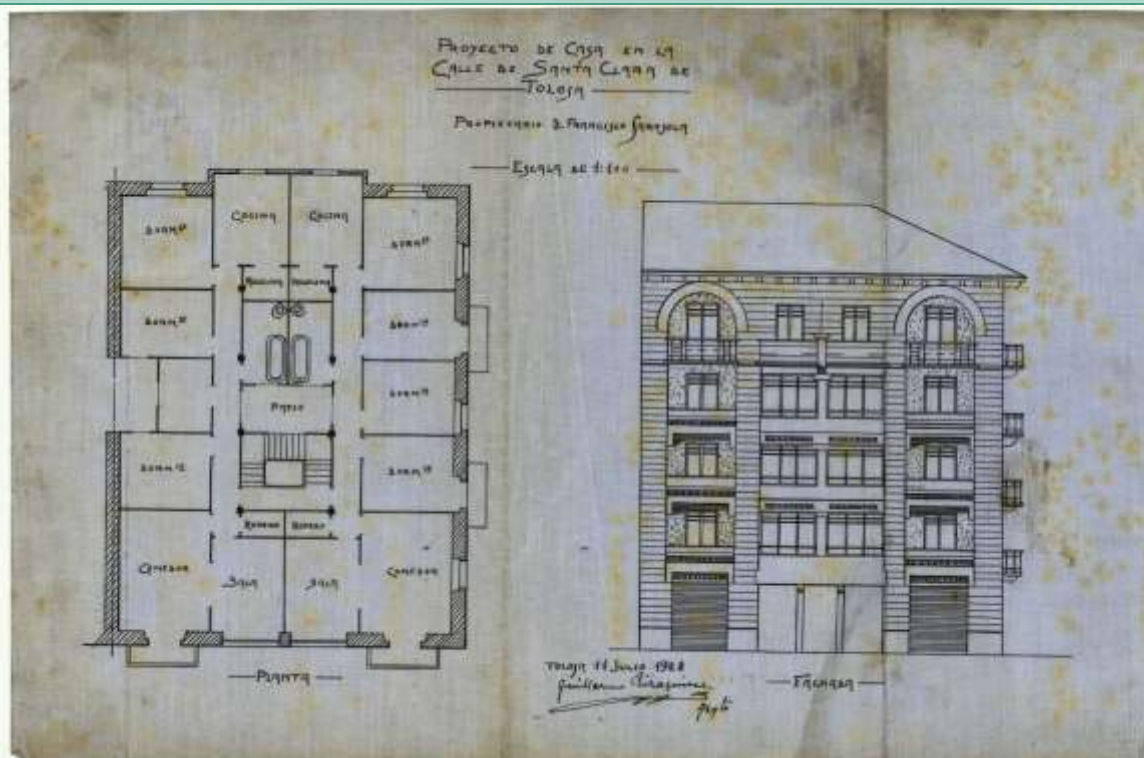 PROYECTO DE CASA EN LA
CALLE DE SANTA CLARA DE
TOLOSA
PROPIETARIO D. FRANCISCO
ESCALA DE 1:100
COCINA
COCINA
DORMº
DORMº
DORMº
DORMº
DORMº
PATIO
DORMº
DORMº
ROPERO
ROPERO
COMEDOR
SALA
SALA
COMEDOR
PLANTA
TOLOSA 11 JULIO 1928
Guillermo Eizaguirre
Arqto
FACHADA